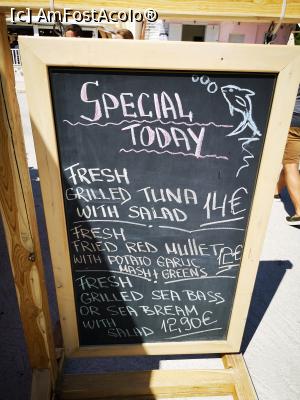 [c] AmFostAcolo®
SPECIAL
TODAY
FRESH
GRILLED TUNA
WITH SALAD 14€
FRESH
FRIED RED MULLET
WITH POTATO GARLIC
MASH! GREENS
FRESH
GRILLED SEA BASS
OR SEA BREAM
WITH
SALAD 12,90€